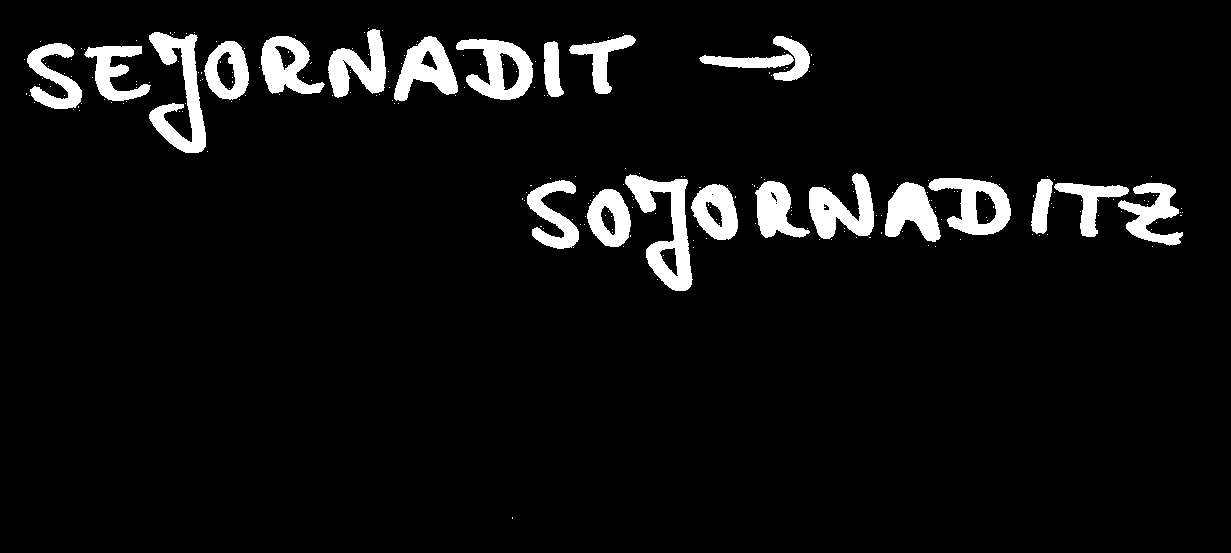 SEJORNADIT →
SOJORNADITZ